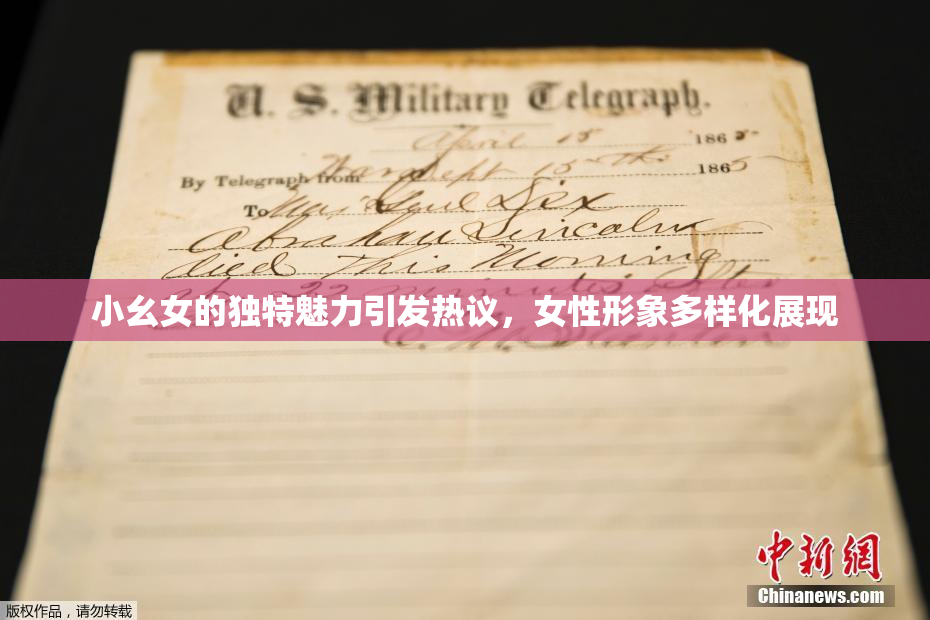 U. S. Military Telegraph.
April 15 1865
By Telegraph from War Dept 15th 1865
To Maj Genl Dix
Abraham Lincoln
died this morning
22 minutes after
小幺女的独特魅力引发热议，女性形象多样化展现
E. M. Stanton
中新网
Chinanews.com
版权作品，请勿转载